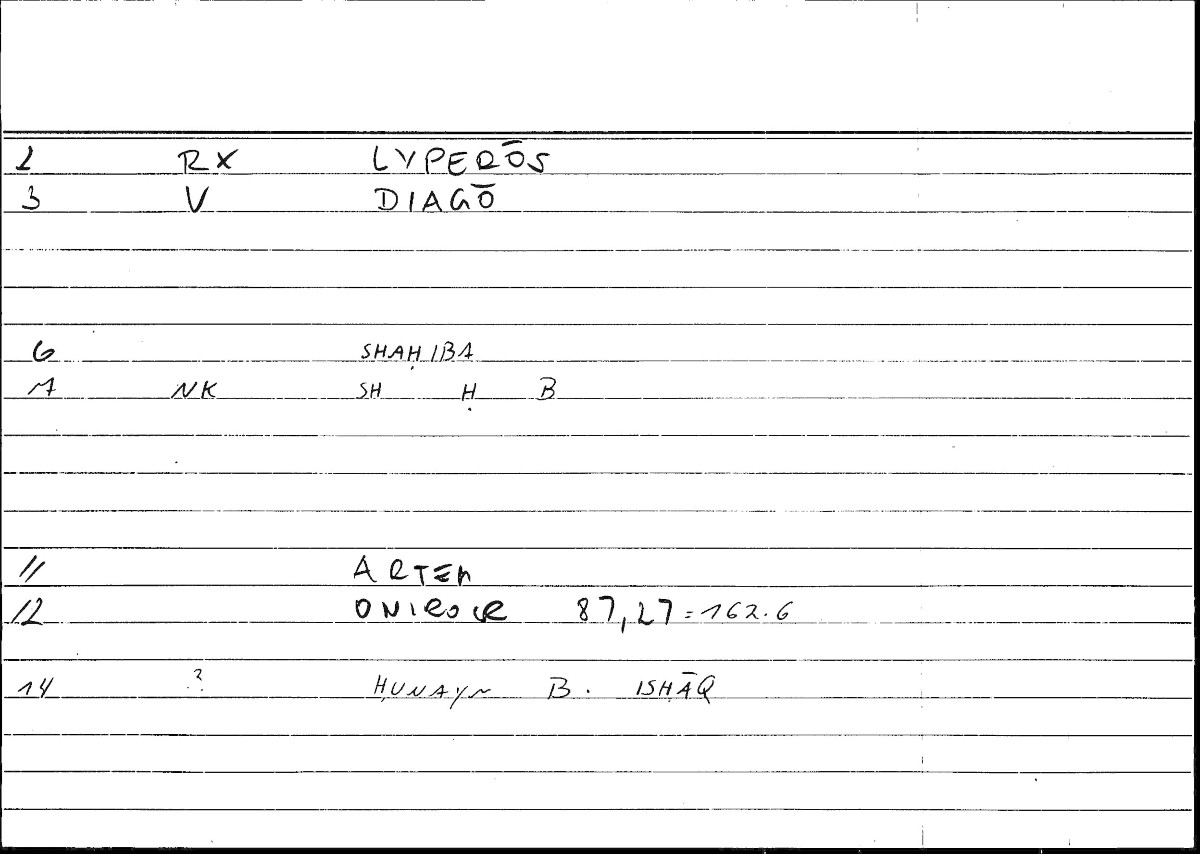 2 RX LVPERŌS
3 V DIAGŌ
6 SHAḤIBA
7 NK SH Ḥ B
11 ARTEM
12 ONIROCR 87,27=162.6
14 ? ḤUNAYN B. ISḤĀQ